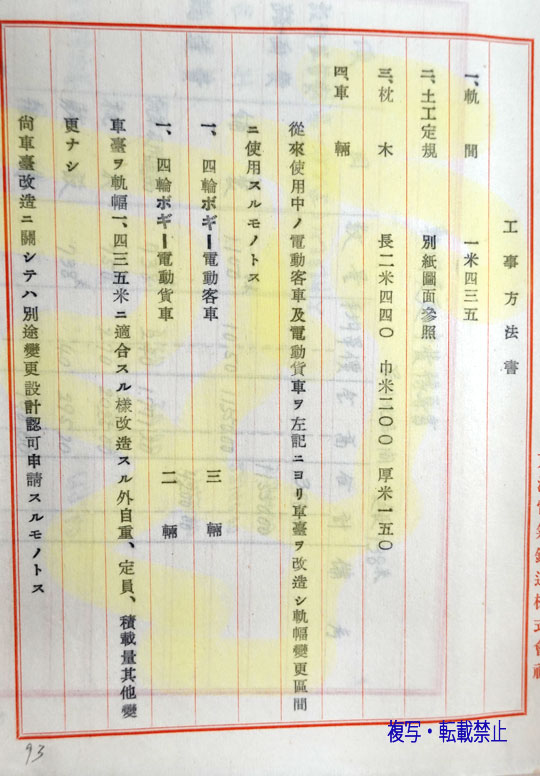 工事方法書
一、軌間 一米四三五
二、土工定規 別紙圖面參照
三、枕木 長二米四四〇 巾米二〇〇 厚米一五〇
四、車輛
從來使用中ノ電動客車及電動貨車ヲ左記ニヨリ車臺ヲ改造シ軌幅變更區間
ニ使用スルモノトス
一、四輪ボギー電動客車 三輛
一、四輪ボギー電動貨車 二輛
車臺ヲ軌幅一、四三五米ニ適合スル樣改造スル外自重、定員、積載量其他變
更ナシ
尙車臺改造ニ關シテハ別途變更設計認可申請スルモノトス
鐵道株式會社
93
複写・転載禁止